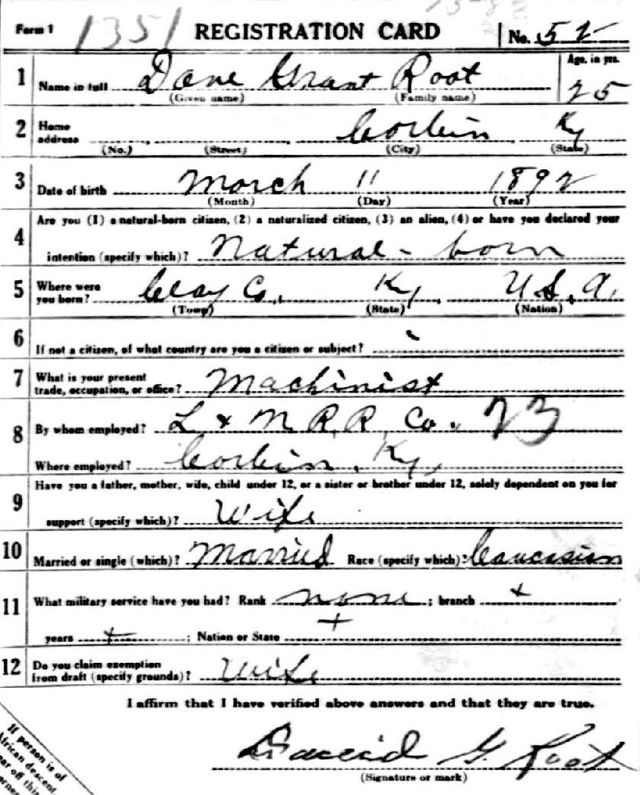 Form 1 1351 REGISTRATION CARD No. 52
1 Name in full Dave Grant Root Age, in yrs. 25
(Given name) (Family name)
2 Home address Corbin Ky
(No.) (Street) (City) (State)
3 Date of birth March 11 1892
(Month) (Day) (Year)
4 Are you (1) a natural-born citizen, (2) a naturalized citizen, (3) an alien, (4) or have you declared your
intention (specify which)? Natural-born
5 Where were you born? Clay Co., Ky, U.S.A.
(Town) (State) (Nation)
6 If not a citizen, of what country are you a citizen or subject?
7 What is your present trade, occupation, or office? Machinist
8 By whom employed? L & N R.R. Co. 23
Where employed? Corbin, Ky,
9 Have you a father, mother, wife, child under 12, or a sister or brother under 12, solely dependent on you for
support (specify which)? Wife
10 Married or single (which)? Married Race (specify which)? Caucasian
11 What military service have you had? Rank none ; branch +
years + ; Nation or State +
12 Do you claim exemption from draft (specify grounds)? Wife
I affirm that I have verified above answers and that they are true.
David G. Root
(Signature or mark)
If person is of
African descent